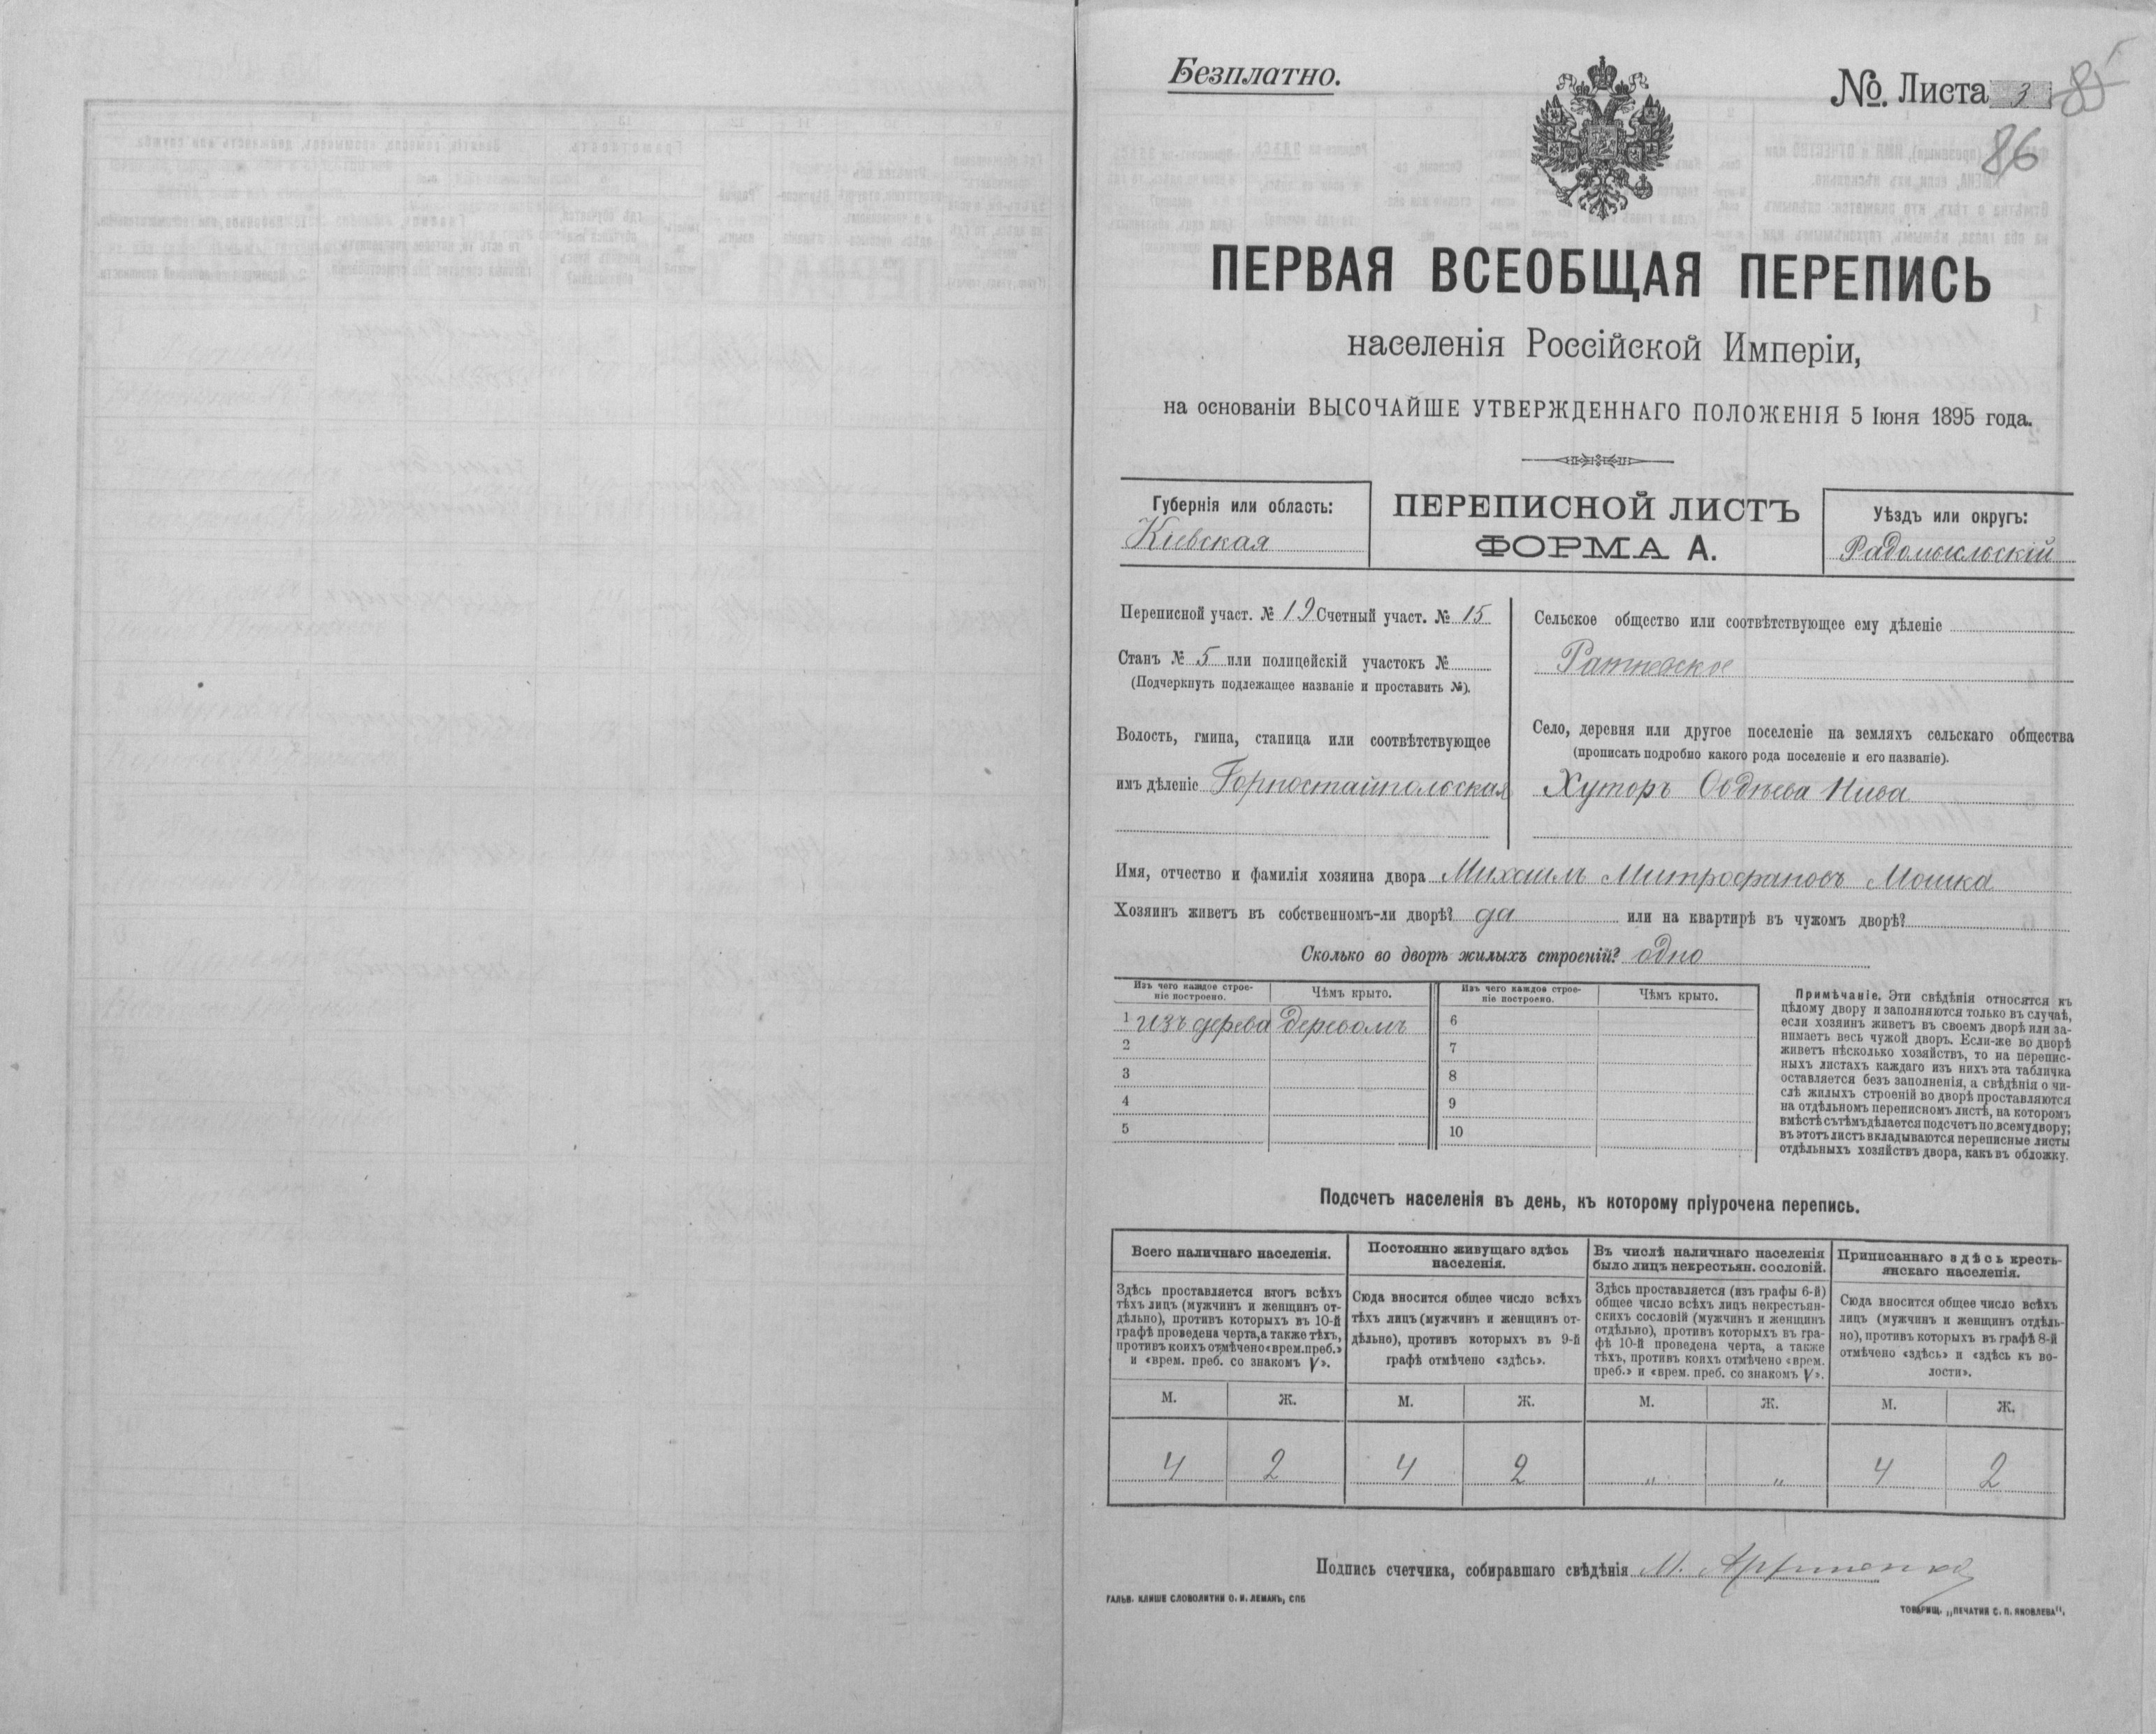 Безплатно.
№. Листа 3 85
86
ПЕРВАЯ ВСЕОБЩАЯ ПЕРЕПИСЬ
населенія Россійской Имперіи,
на основаніи ВЫСОЧАЙШЕ УТВЕРЖДЕННАГО ПОЛОЖЕНІЯ 5 Іюня 1895 года.
Губернія или область:
Кіевская
ПЕРЕПИСНОЙ ЛИСТЪ
ФОРМА А.
Уѣздъ или округъ:
Радомысльскій
Переписной участ. № 19 Счетный участ. № 15
Станъ № 5 или полицейскій участокъ №
(Подчеркнуть подлежащее названіе и проставить №).
Волость, гмина, станица или соотвѣтствующее
имъ дѣленіе Горностайпольская
Сельское общество или соотвѣтствующее ему дѣленіе
Ратневское
Село, деревня или другое поселеніе на земляхъ сельскаго общества
(прописать подробно какого рода поселеніе и его названіе).
Хуторъ Овдѣева Нива
Имя, отчество и фамилія хозяина двора Михаилъ Митрофановъ Мошка
Хозяинъ живетъ въ собственномъ-ли дворѣ? да или на квартирѣ въ чужомъ дворѣ?
Сколько во дворѣ жилыхъ строеній? одно
Изъ чего каждое строе-
ніе построено.
Чѣмъ крыто.
Изъ чего каждое строе-
ніе построено.
Чѣмъ крыто.
1 изъ дерева деревомъ 6
2 7
3 8
4 9
5 10
Примѣчаніе. Эти свѣдѣнія относятся къ
цѣлому двору и заполняются только въ случаѣ,
если хозяинъ живетъ въ своемъ дворѣ или за-
нимаетъ весь чужой дворъ. Если-же во дворѣ
живетъ нѣсколько хозяйствъ, то на перепис-
ныхъ листахъ каждаго изъ нихъ эта табличка
оставляется безъ заполненія, а свѣдѣнія о чи-
слѣ жилыхъ строеній во дворѣ проставляются
на отдѣльномъ переписномъ листѣ, на которомъ
вмѣстѣ съ тѣмъ дѣлается подсчетъ по всему двору;
въ этотъ листъ вкладываются переписные листы
отдѣльныхъ хозяйствъ двора, какъ въ обложку.
Подсчетъ населенія въ день, къ которому пріурочена перепись.
Всего наличнаго населенія.
Здѣсь проставляется итогъ всѣхъ
тѣхъ лицъ (мужчинъ и женщинъ от-
дѣльно), противъ которыхъ въ 10-й
графѣ проведена черта, а также тѣхъ,
противъ коихъ отмѣчено «врем. преб.»
и «врем. преб. со знакомъ V».
Постоянно живущаго здѣсь
населенія.
Сюда вносится общее число всѣхъ
тѣхъ лицъ (мужчинъ и женщинъ от-
дѣльно), противъ которыхъ въ 9-й
графѣ отмѣчено «здѣсь».
Въ числѣ наличнаго населенія
было лицъ некрестьян. сословій.
Здѣсь проставляется (изъ графы 6-й)
общее число всѣхъ лицъ некрестьян-
скихъ сословій (мужчинъ и женщинъ
отдѣльно), противъ которыхъ въ гра-
фѣ 10-й проведена черта, а также
тѣхъ, противъ коихъ отмѣчено «врем.
преб.» и «врем. преб. со знакомъ V».
Приписаннаго здѣсь кресть-
янскаго населенія.
Сюда вносится общее число всѣхъ
лицъ (мужчинъ и женщинъ отдѣль-
но), противъ которыхъ въ графѣ 8-й
отмѣчено «здѣсь» и «здѣсь къ во-
лости».
М. Ж. М. Ж. М. Ж. М. Ж.
4 2 4 2 „ „ 4 2
Подпись счетчика, собиравшаго свѣдѣнія М.
ГАЛЬВ. КЛИШЕ СЛОВОЛИТНИ О. И. ЛЕМАНЪ, СПБ
ТОВАРИЩ. „ПЕЧАТНЯ С. П. ЯКОВЛЕВА".